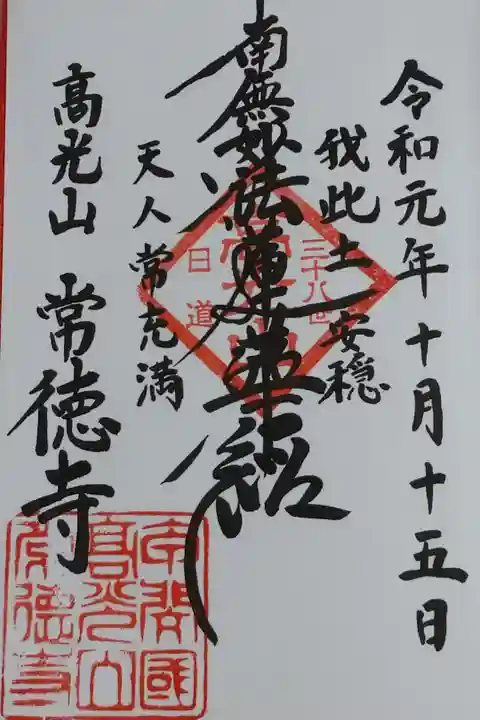 令和元年十月十五日
我此土安穏
南無妙法蓮華経
天人常充満
高光山 常徳寺
三十八世
日道
本開國
高光山
常德寺